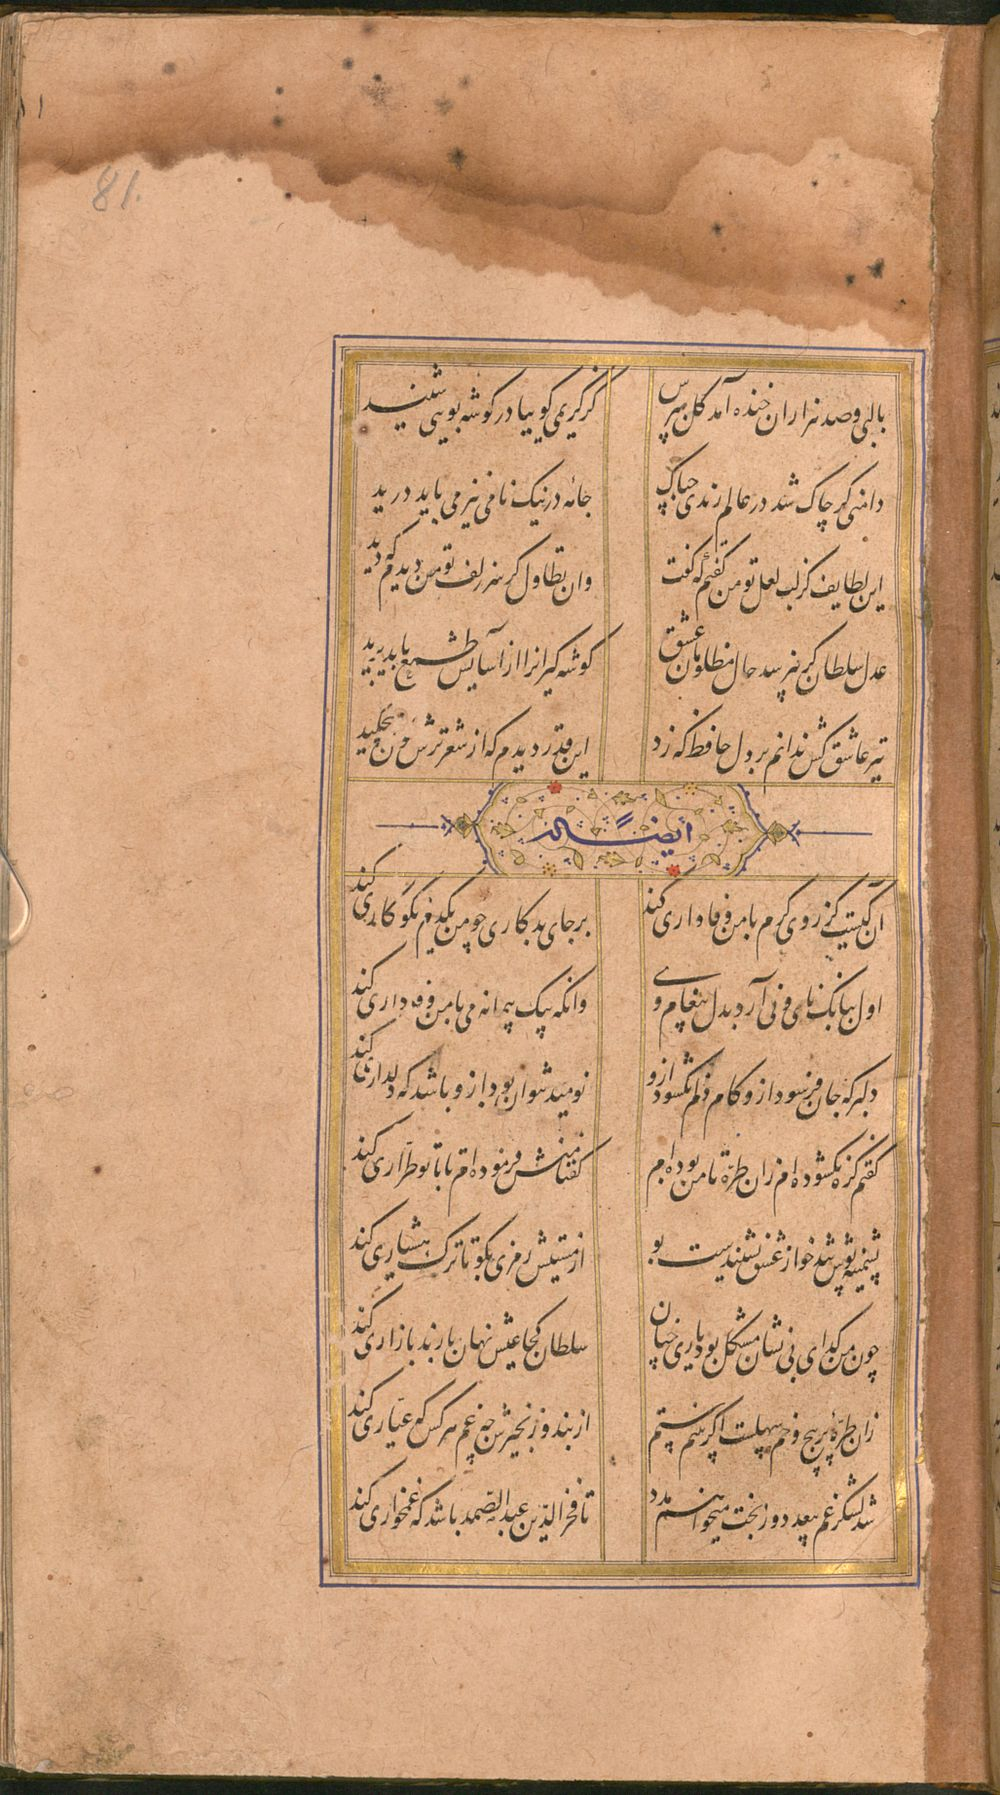 81.
بالبی و صد هزاران خنده آمد گل بپرس
کز کریمی گوییا در گوشه بویی شنید
دامنی کر چاک شد در عالم رندی چه باک
جامه در نیک نامی نیز می باید درید
این لطایف کز لب لعل تو من گفتم که گفت
وان تطاول کز سر زلف تو من دیدم که دید
عدل سلطان کر نپرسد حال مظلومان عشق
گوشه گیرانرا از آسایش طمع باید برید
تیر عاشق کش ندانم بر دل حافظ که زد
این قدر دیدم که از شعر ترش خون میچکید
ایضاً له
آن کیست کز روی کرم با من وفاداری کند
بر جای بدکاری چو من یکدم نکوکاری کند
اول ببانگ نای و نی آرد بدل پیغام وی
وانگه بیک پیمانه می با من وفاداری کند
دلبر که جان فرسود ازو کام دلم نگشود ازو
نومید نتوان بود ازو باشد که دلداری کند
گفتم گره نگشوده ام زان طره تا من بوده ام
گفتا منش فرموده ام تا با تو طراری کند
پشمینه پوش تندخو از عشق نشنیدست بو
از مستیش رمزی بگو تا ترک هشیاری کند
چون من گدای بی نشان مشکل بود یاری چنان
سلطان کجا عیش نهان با رند بازاری کند
زان طره پر پیچ و خم سهلست اگر بینم ستم
از بند و زنجیرش چه غم هر کس که عیاری کند
شد لشکر غم بیعدد وز بخت میخواهم مدد
تا فخر الدین عبد الصمد باشد که غمخواری کند